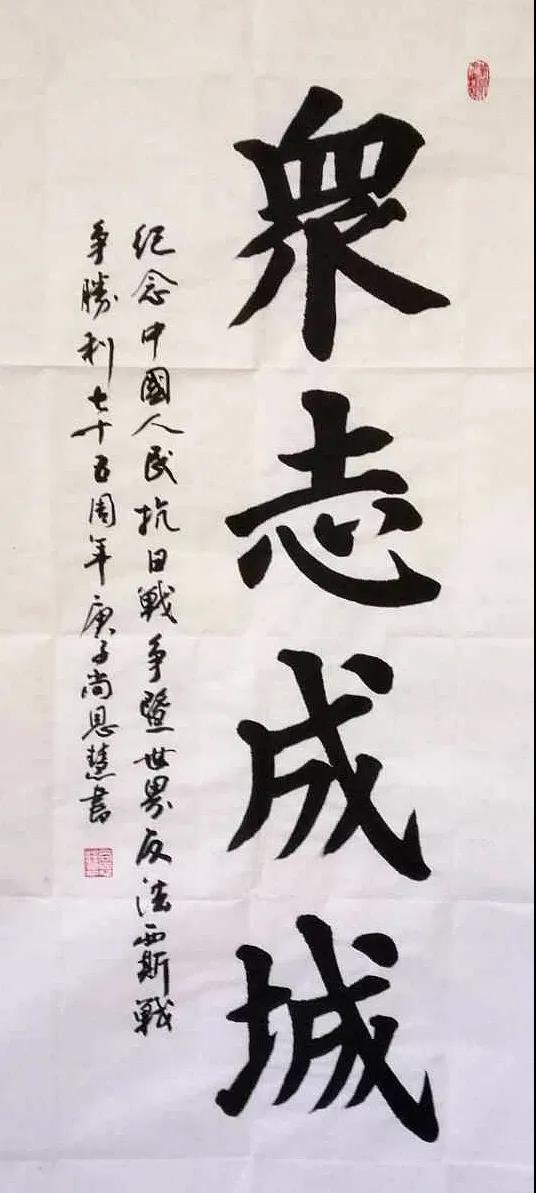 衆志成城
紀念中國人民抗日戰争暨世界反法西斯戰
争勝利七十五周年庚子尚恩慧書